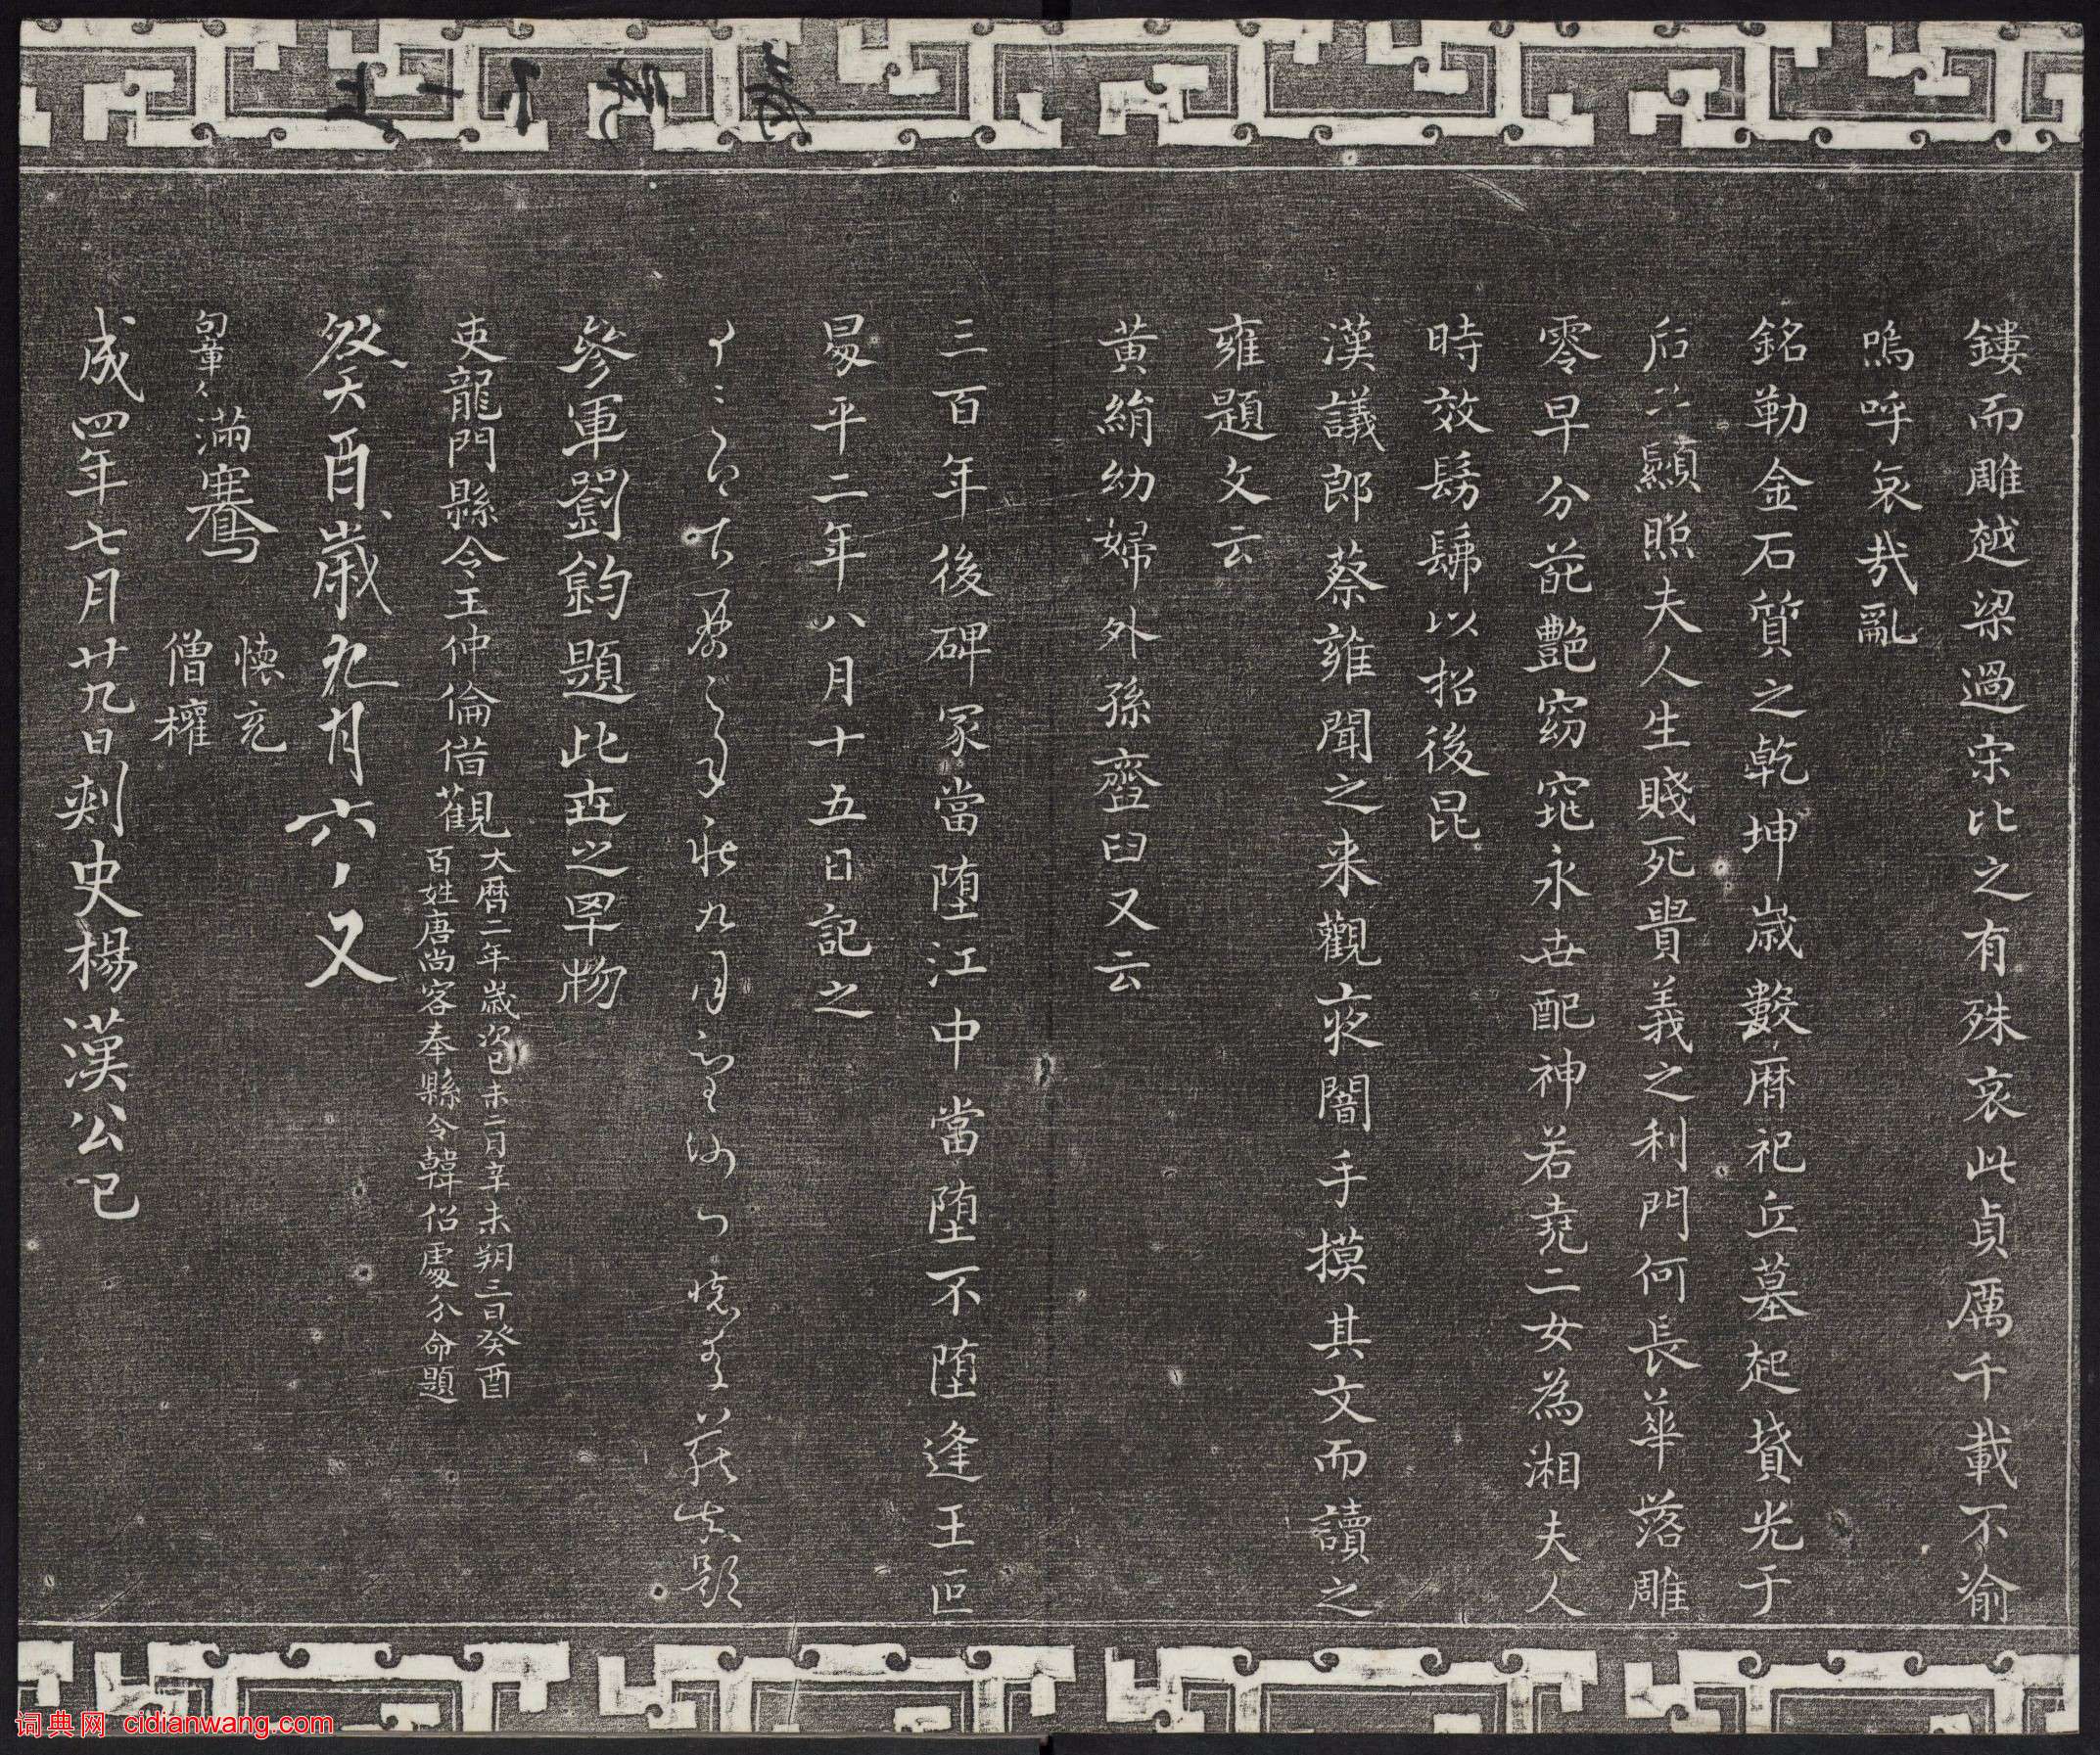 鏤而雕越梁過宋比之有殊哀此貞厲千載不渝
嗚呼哀哉亂
銘勒金石質之乾坤歲數曆祀丘墓起墳光于
后土顯照夫人生賤死貴義之利門何長華落雕
零早分葩艷窈窕永世配神若堯二女為湘夫人
時效髣髴以招後昆
漢議郎蔡雍聞之来觀夜闇手摸其文而讀之
雍題文云
黃絹幼婦外孫齏臼又云
三百年後碑冢當墮江中當墮不墮逢王叵
昪平二年八月十五日記之
九月
題
參軍劉鈞題此世之罕物
吏龍門縣令王仲倫借觀
大曆二年歲次己未二月辛未朔三日癸酉
百姓唐尚客奉縣令韓侣處分命題
癸酉歲九月六
又
句章令
滿騫
懷充
僧權
成四年七月廿九日刺史楊漢公已
春
不一上
词典网 cidianwang.com